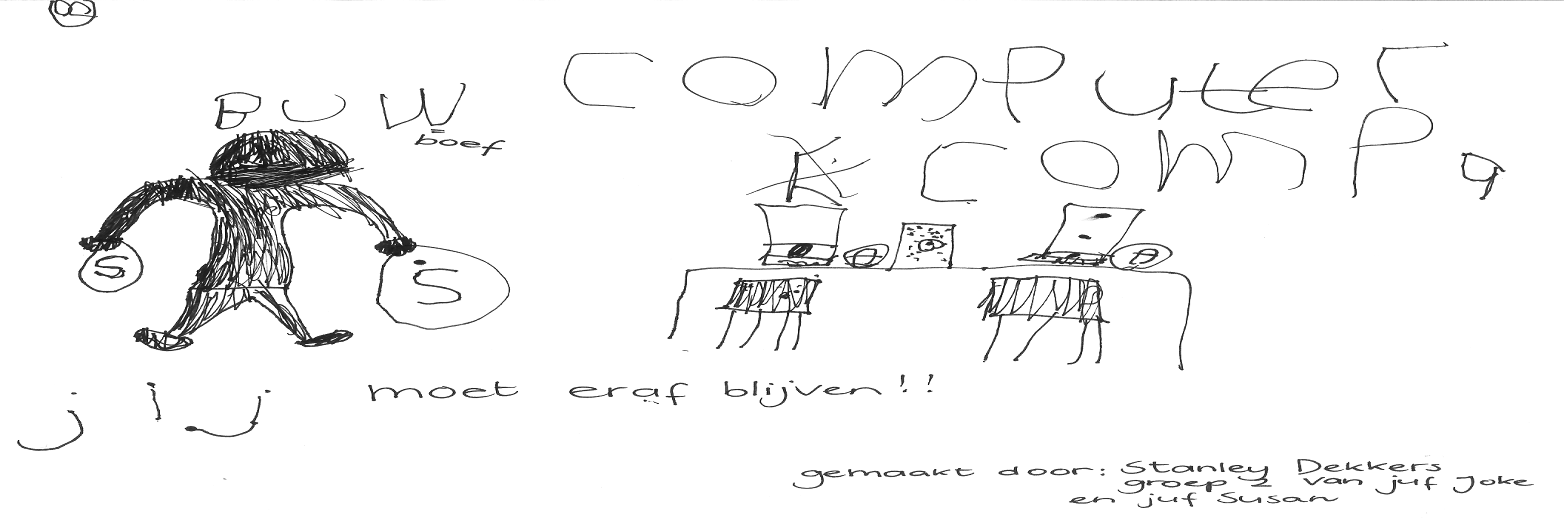 8
computer
BUW
= boef
K comp,
S
S
jij moet eraf blijven!!
gemaakt door: Stanley Dekkers
groep 2 van juf Joke
en juf Susan